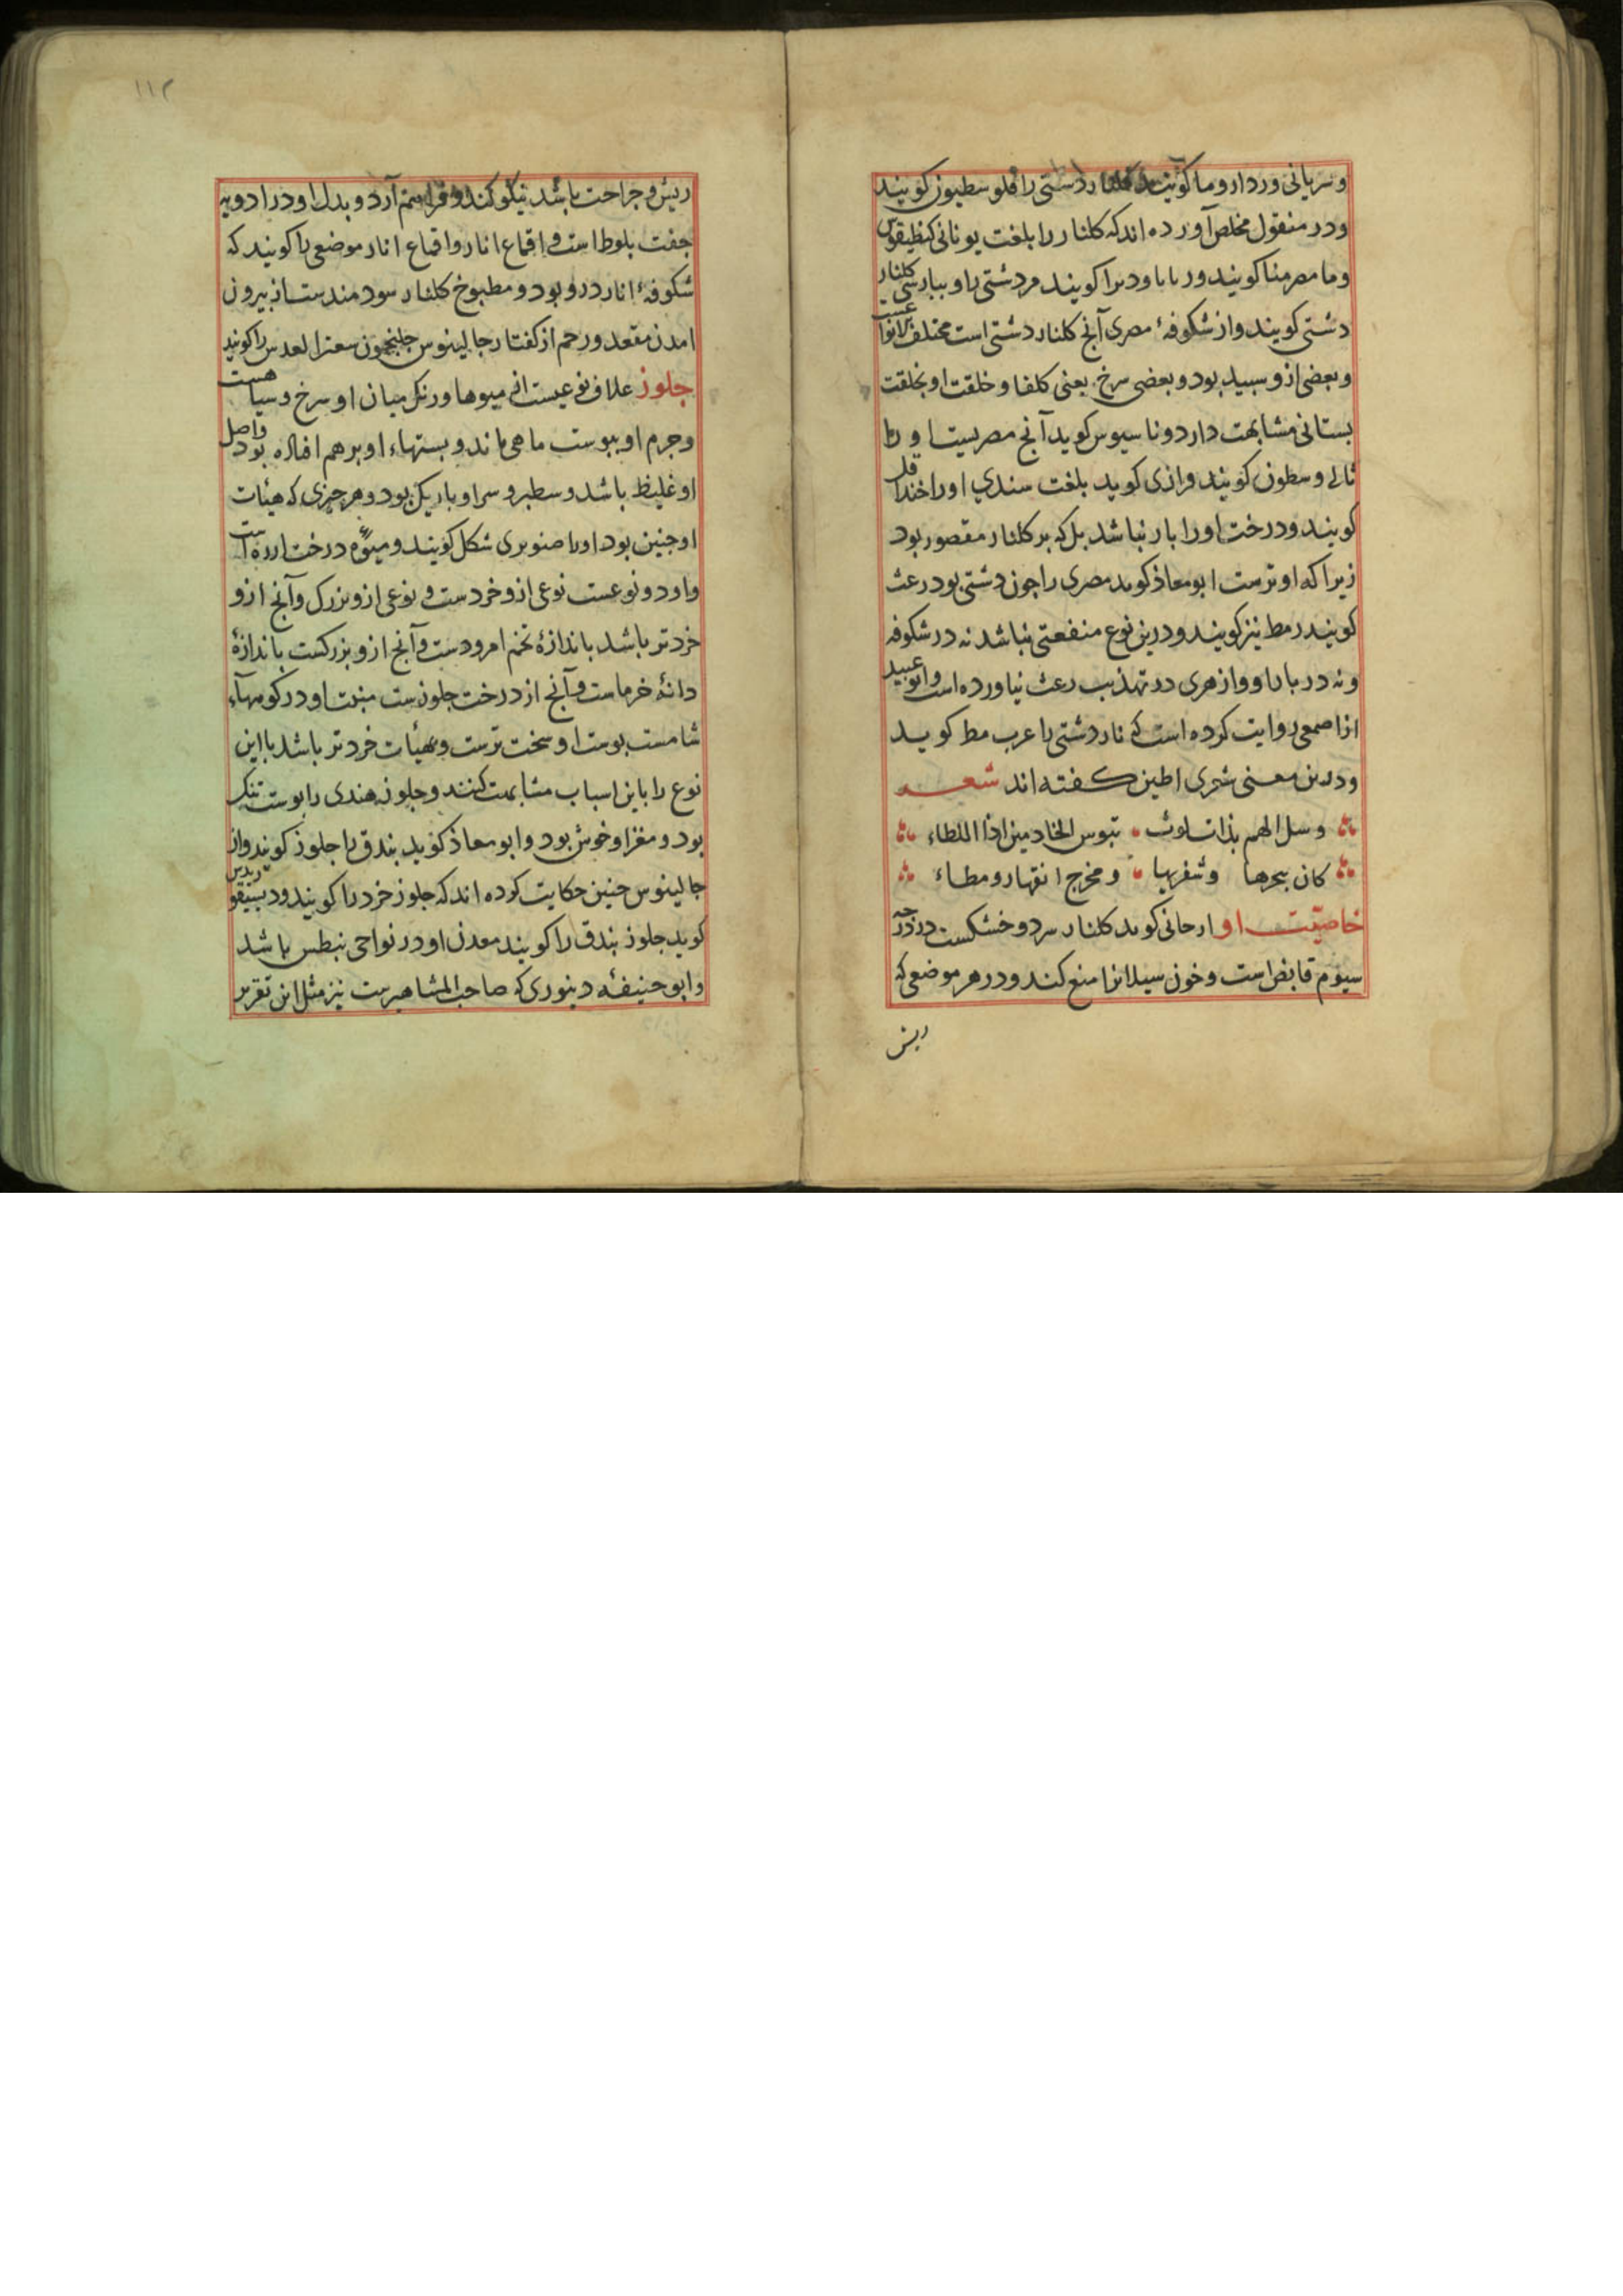 و سریانی ورد اروما کویند کلنار دستی را فلوسطیون کویند
ودر منقول مخلص آورده اند که کلنار را بلغت یونانی کنطیقوس
وما مصر منا کویند ور بابا ودیرا کویند مر دشتی را و ببارسی کلنار
دشتی کویند و از شکوفهٔ مصری آنج کلنار دشتی است مختلف الوان
و بعضی ازو سبید بود و بعضی سرخ یعنی کلفا و خلقت او بخلقت
بستانی مشابهت دارد و ناسیوس کوید آنج مصریست او را
ثالی وسطون کویند و رازی کوید بلغت سندی او را خندا قل
کویند و درخت او را بار نباشد بل که بر کلنار مقصور بود
زیرا که او نرست ابو معاذ کوید مصری را جون دشتی بود رعث
کویند رمط نیز کویند و درین نوع منفعتی نباشد نه در شکوفه
ونه در بار او و ازهری در تهذیب رعث نیاورده است و ابو عبید
از اصمعی روایت کرده است که نار دشتی را عرب مط کوید
ودرین معنی شری اطین کفته اند شعر
وسل الهم بذات لوث تبوس الخادمین اذا اللطاء
کان بحرها وشفریها ومخرج انفها رومطاء
خاصیت او ارجانی کوید کلنار سرد و خشکست در درجه
سیوم قابض است و خون سیلانرا منع کند و در هر موضعی که
ریش
۱۱۲
ریش و جراحت باشد نیکو کند و فراهم آرد و بدل او در ادویه
جفت بلوط است و اقماع انار و اقماع انار موضعی را کویند که
شکوفهٔ انار درو بود و مطبوخ کلنار سودمند ست از بیرون
امدن مقعد و رحم از کفتار جالینوس جلنجون سعتر العدس را کویند
جلوز علاف نوعیست از میوها و رنک میان او سرخ و سیاهست
وجرم او ببوست ماهی ماند و بستهاء او بر هم افتاده بود و اصل
او غلیظ باشد و سطبر و سر او باریک بود و هر چیزی که هیئات
او جنین بود او را صنوبری شکل کویند و میوه درخت ارزه است
و او دو نوعست نوعی ازو خردست و نوعی ازو بزرک و آنج ازو
خردتر باشد باندازهٔ تخم امرودست و آنج ازو بزرکست باندازهٔ
دانهٔ خرماست و آنج از درخت جلوزست منبت او در کوههاء
شامست بوست او سخت ترست و بهیئات خردتر باشد با این
نوع را باین اسباب مشابهت کنند و جلوز هندی را بوست تنک
بود و مغز او خوش بود و ابو معاذ کوید بندق را جلوز کویند و از
جالینوس جنین حکایت کرده اند که جلوز خرد را کویند و دیسقوریدس
کوید جلوز بندق را کویند معدن او در نواحی بنطس باشد
و ابو حنیفهٔ دینوری که صاحب المشاهیرست نیز مثل این تقریر